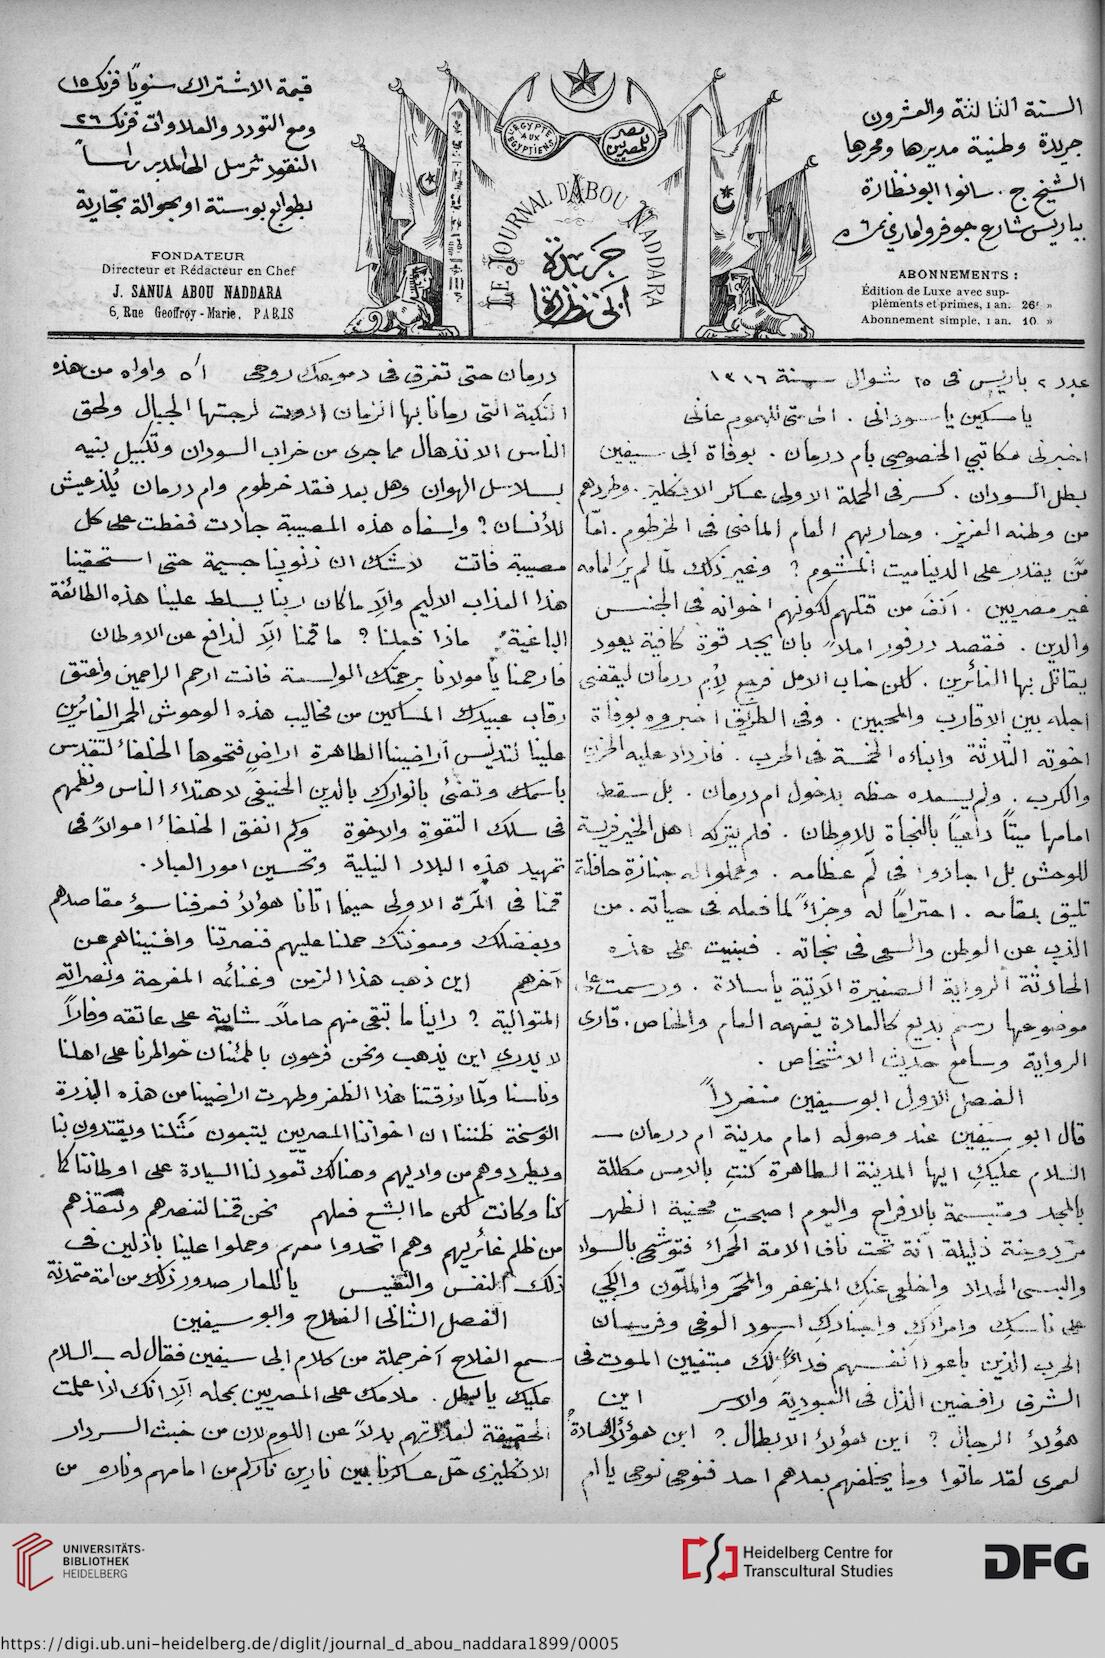 السنة الثالثة والعشرون
جريدة وطنية مديرها ومحررها
الشيخ ج. سانوا ابو نظارة
بباريس شارع جوفروا ماري نمرة ٦
ABONNEMENTS :
Édition de Luxe avec sup-
pléments et primes, 1 an. 26f »
Abonnement simple, 1 an. 10 »
L'EGYPTE
AUX
EGYPTIENS
مصر
للمصريين
LE JOURNAL D'ABOU NADDARA
جريدة
ابي نظارة
قيمة الاشتراك سنويًا فرنك ١٥
ومع التودد والعلاوات فرنك ٢٦
النقود ترسل الى المدير راساً
بطوابع بوستة او بحوالة تجارية
FONDATEUR
Directeur et Rédacteur en Chef
J. SANUA ABOU NADDARA
6, Rue Geoffroy-Marie, PARIS
عدد ٢ باريس في ٢٥ شوال سنة ١٣١٦
يا مسكين يا سوداني . الى متى للهموم عاني
اخبرني مكاتبي الخصوصي بأم درمان . بوفاة ابي سيفين
بطل السودان . كسر في الحملة الاولى عساكر الانكليز . وطردهم
من وطنه العزيز . وحاربهم العام الماضي في الخرطوم . امّا
مّن يقدر على الديناميت المشوم ? وغير ذلك لمّا لم يرَ امامه
غير مصريين . انف من قتلهم لكونهم اخوانه في الجنس
والدين . فقصد درفور املاً بان يجد قوة كافية يعود
يقاتل بها الثائرين . لكن خاب الامل فرجع لأم درمان ليقضي
اجله بين الاقارب والمحبين . وفي الطريق اخبروه بوفاة
اخوته الثلاثة وابناءه الخمسة في الحرب . فازداد عليه الحزن
والكرب . ولم يسعده حظه بدخول ام درمان . بل سقط
امامها ميتاً داعياً بالنجاة للاوطان . فلم يتركه اهل الخير فريسة
للوحش بل اجادوا في لّم عظامه . وعملوا له جنازة حافلة
تليق بمقامه . احتراماً له وجزاءً لما فعله في حياته . من
الذب عن الوطن والسعي في نجاته . فبنيت على هذه
الحادثة الرواية الصغيرة الآتية يا سادة . ورسمت على
موضوعها رسم بديع كالعادة يفهمه العام والخاص . قاري
الرواية وسامع حديث الاشخاص .
الفصل الاول ابو سيفين منفرداً
قال ابو سيفين عند وصوله امام مدينة ام درمان ــ
السلام عليكِ ايها المدينة الطاهرة كنتِ بالامس مكللة
بالمجد ومتبسمة بالافراح واليوم اصبحتِ محنية الظهر
ذليلة انّة تحت ناف الامة الحمراء فتوشحي بالسواد
والبسي الحداد واخلعي عنك المزعفر والمحمّر والملّون وابكي
على ناسك وامرائكِ واجنادكِ اسود الوغى وفرسان
الحرب الذين باعوا انفسهم فداءً لك مبتغيين الموت في
الشرف رافضين الذل في العبودية والاسر اين
هؤلاُ الرجال ? اين هؤلاُ الابطال ? اين هؤلاُ السادة
لعمري لقد ماتوا وما يخلفهم بعدهم احد فنوحي نوحي يا ام
درمان حتى تغرق في دموعك روحي اُه واواه من هذه
النكبة التي رمانا بها الزمان لرجتها الجبال ولحق
الناس الانذهال مما جرى من خراب السودان وتكبيل بنيه
بسلاسل الهوان وهل بعد فقد خرطوم وام درمان يُلذ عيش
للأنسان ? واسفاه هذه المصيبة جادت فغطت على كل
مصيبة فاتت لاشك ان ذنوبنا جسيمة حتى استحقينا
هذا العذاب الاليم والّا ما كان ربنا يسلط علينا هذه الطائفة
الباغية ماذا فعلنا ? ما قمنا الّا لندافع عن الاوطان
فارحمنا يا مولانا برحمتك الواسعة فانت ارحم الراحمين واعتق
رقاب عبيدك المساكين من مخاليب هذه الوحوش الحمر الفائزين
علينا لتدنيس أراضينا الطاهرة اراضٍ فتحوها الخلفاءُ لتقدس
باسمك وتضئ بانوارك بالدين الحنيفي لاهتداء الناس ونظمهم
في سلك التقوة والاخوة وكم انفق الخلفاءُ اموالاً في
تمهيد هذه البلاد النيلية وتحسين امور العباد .
قمنا في المّرة الاولى حينما اتانا هؤلاُ فعرفنا سؤ مقاصدهم
وبفضلك ومعونتك حملنا عليهم فنصرتنا وافنيناهم عن
آخرهم اين ذهب هذا الزمن وغنائمه المفرحة ونصراته
المتوالية ? راينا ما تبقى منهم حاملاً على عاتقه وفاراً
لا يدري اين يذهب ونحن فرحون باطمئنان خواطرنا على اهلنا
وناسنا ولمّا رزقتنا هذا الظفر وطهرت اراضينا من هذه البذرة
الوسخة ظننا ان اخواننا المصريين يتبعون مَثَلنا ويقتدون بنا
ويطردوهم من واديهم وهنالك تعود لنا السيادة على اوطاننا كما
كنا وكانت لكن ما ابشع فعلهم نحن قمنا لننصرهم وننقذهم
من ظلم غائريهم وهم اتحدوا معهم وحملوا علينا باذلين في
ذلك النفس والنفيس يا للعار صدور ذلك من امة متمدنة
الفصل الثاني الفلاح وابو سيفين
سمع الفلاح آخر جملة من كلام ابي سيفين فقال له ــ السلام
عليك يا بطل . ملامك على المصريين بمحله الّا انك اذا علمت
الحقيقة لعذرتهم بدلاً عن اللوم لان من خبث السردار
الانكليزي حّل عساكرنا بين نارين نارلكم من امامهم وناره من
UNIVERSITÄTS-
BIBLIOTHEK
HEIDELBERG
Heidelberg Centre for
Transcultural Studies
DFG
https://digi.ub.uni-heidelberg.de/diglit/journal_d_abou_naddara1899/0005